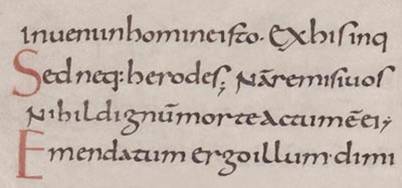 Inuenunhomineisto. Exhisinq
Sed neq: herodes; Nāremisiuos
Nihil dignūmorteactumēei;
Emendatum ergoillum dimi